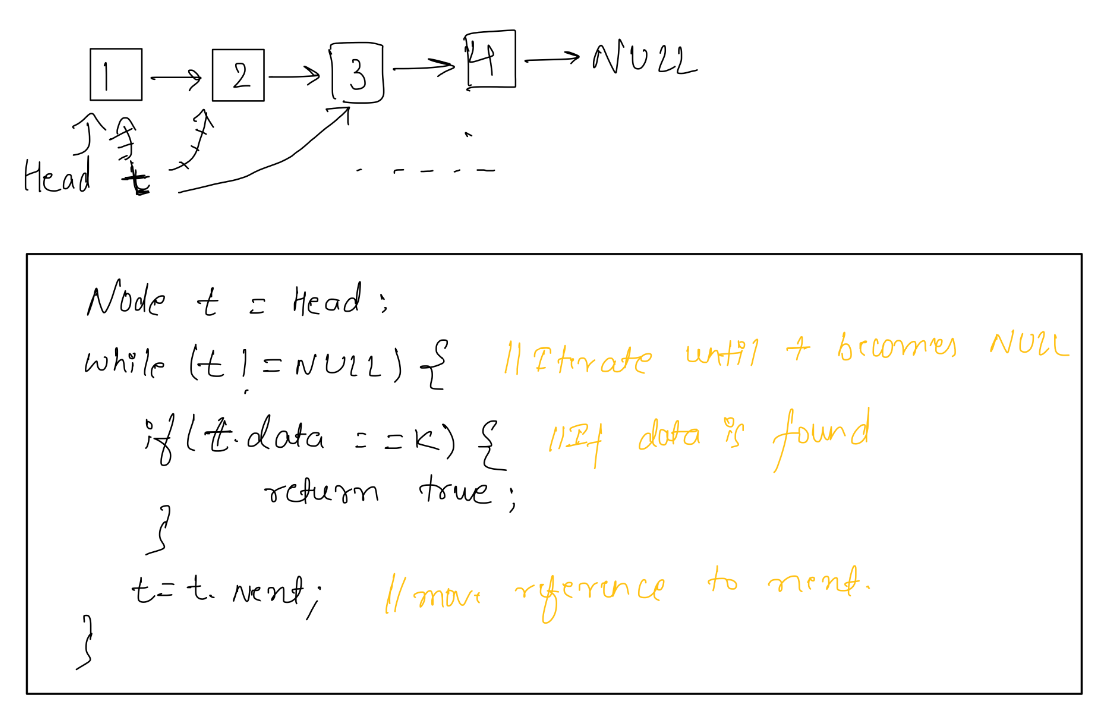 1 → 2 → 3 → 4 → NULL
Head t
Node t = Head;
while (t != NULL) { //Iterate until t becomes NULL
if (t.data == K) { //If data is found
return true;
}
t = t. Next; //move reference to next.
}